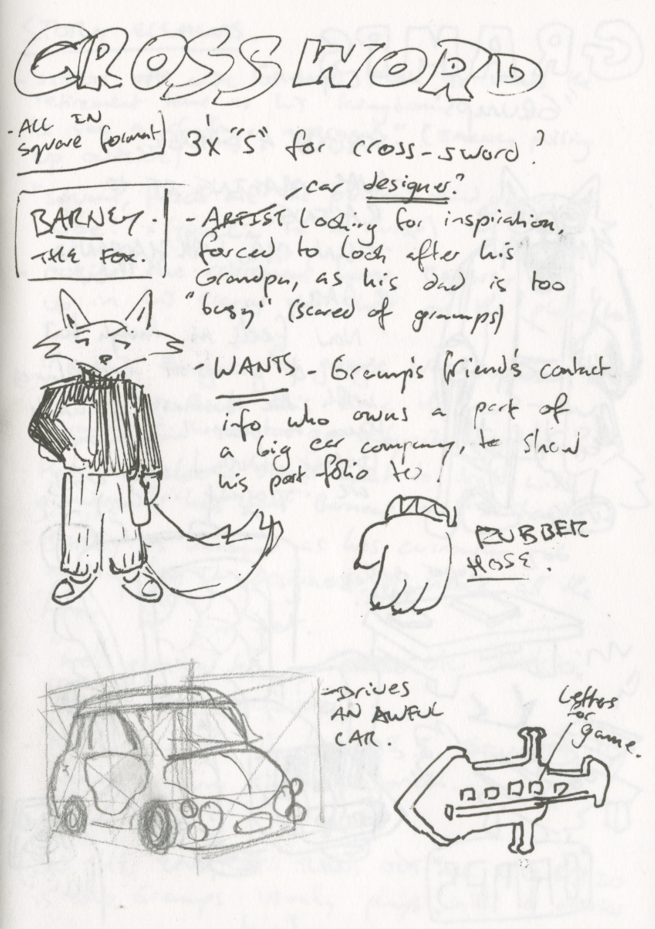 CROSSWORD
- ALL IN
square format
3x "S" for cross-sword?
car designer?
BARNEY.
THE FOX.
- ARTIST Looking for inspiration,
forced to look after his
Grandpa, as his dad is too
"busy" (scared of gramps)
WANTS - Gramp's friend's contact
info who owns a part of
a big car company, to show
his portfolio to.
RUBBER
HOSE.
- Drives
AN AWFUL
CAR.
Letters
or
game.